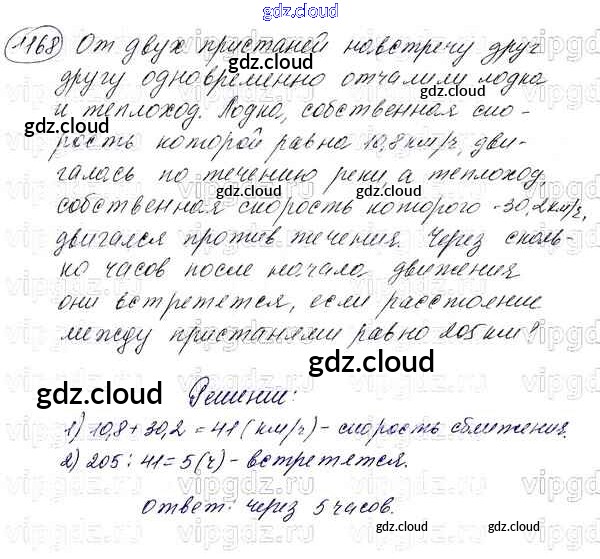 gdz.cloud
1168 От двух пристаней навстречу друг
другу одновременно отчалили лодка
и теплоход. Лодка, собственная ско-
рость которой равна 10,8 км/ч, дви-
галась по течению реки а теплоход,
собственная скорость которого -30,2 км/ч,
двигался против течения. Через сколь-
ко часов после начала движения
они встретятся, если расстояние
между пристанями равно 205 км?
Решение:
1) 10,8 + 30,2 = 41 (км/ч) - скорость сближения.
2) 205 : 41 = 5 (ч) - встретятся.
Ответ: через 5 часов.